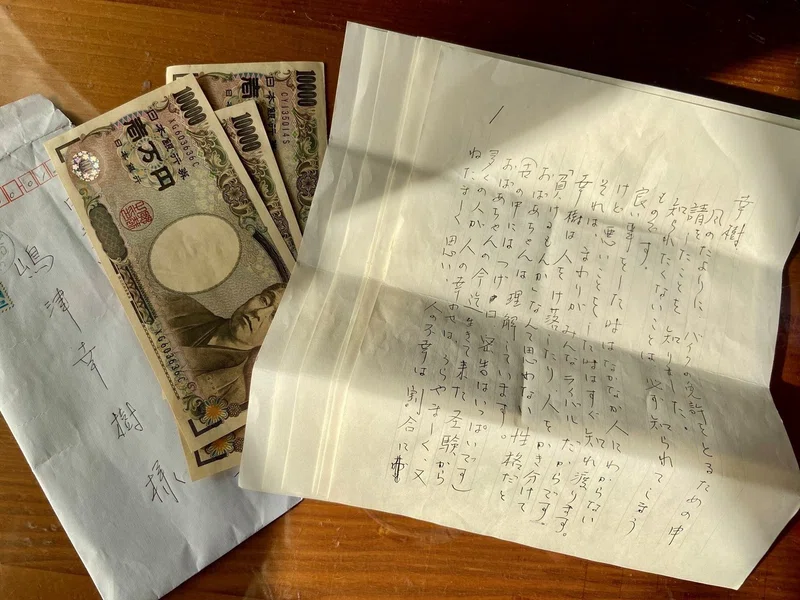 幸樹
風のたよりに バイクの免許をとるための申
請をしたことを 知りました。
知られたくないことは 必ず知られてしまう
ものです。
良い事をした時はなかなか人にわからない
けど 悪いことをした時はすぐ知れ渡ります。
それは、まわりがみんなライバルだからです。
幸樹は人をけ落したり人をかき分けて
「負けるもんか」なんて思わない性格だと
おばあちゃんは理解しています。
世の中にはつげ口 密告はいっぱいです
(おばあちゃんの今迄生きて来た経験から)
多くの人が人の幸せは、うらやましく、又
ねたましく思い、人の不幸は割合に
嶋津幸樹様
日本銀行券
壱万円
日本銀行
10000
XG603636C
XG603636C
10000
10000
CY11350145